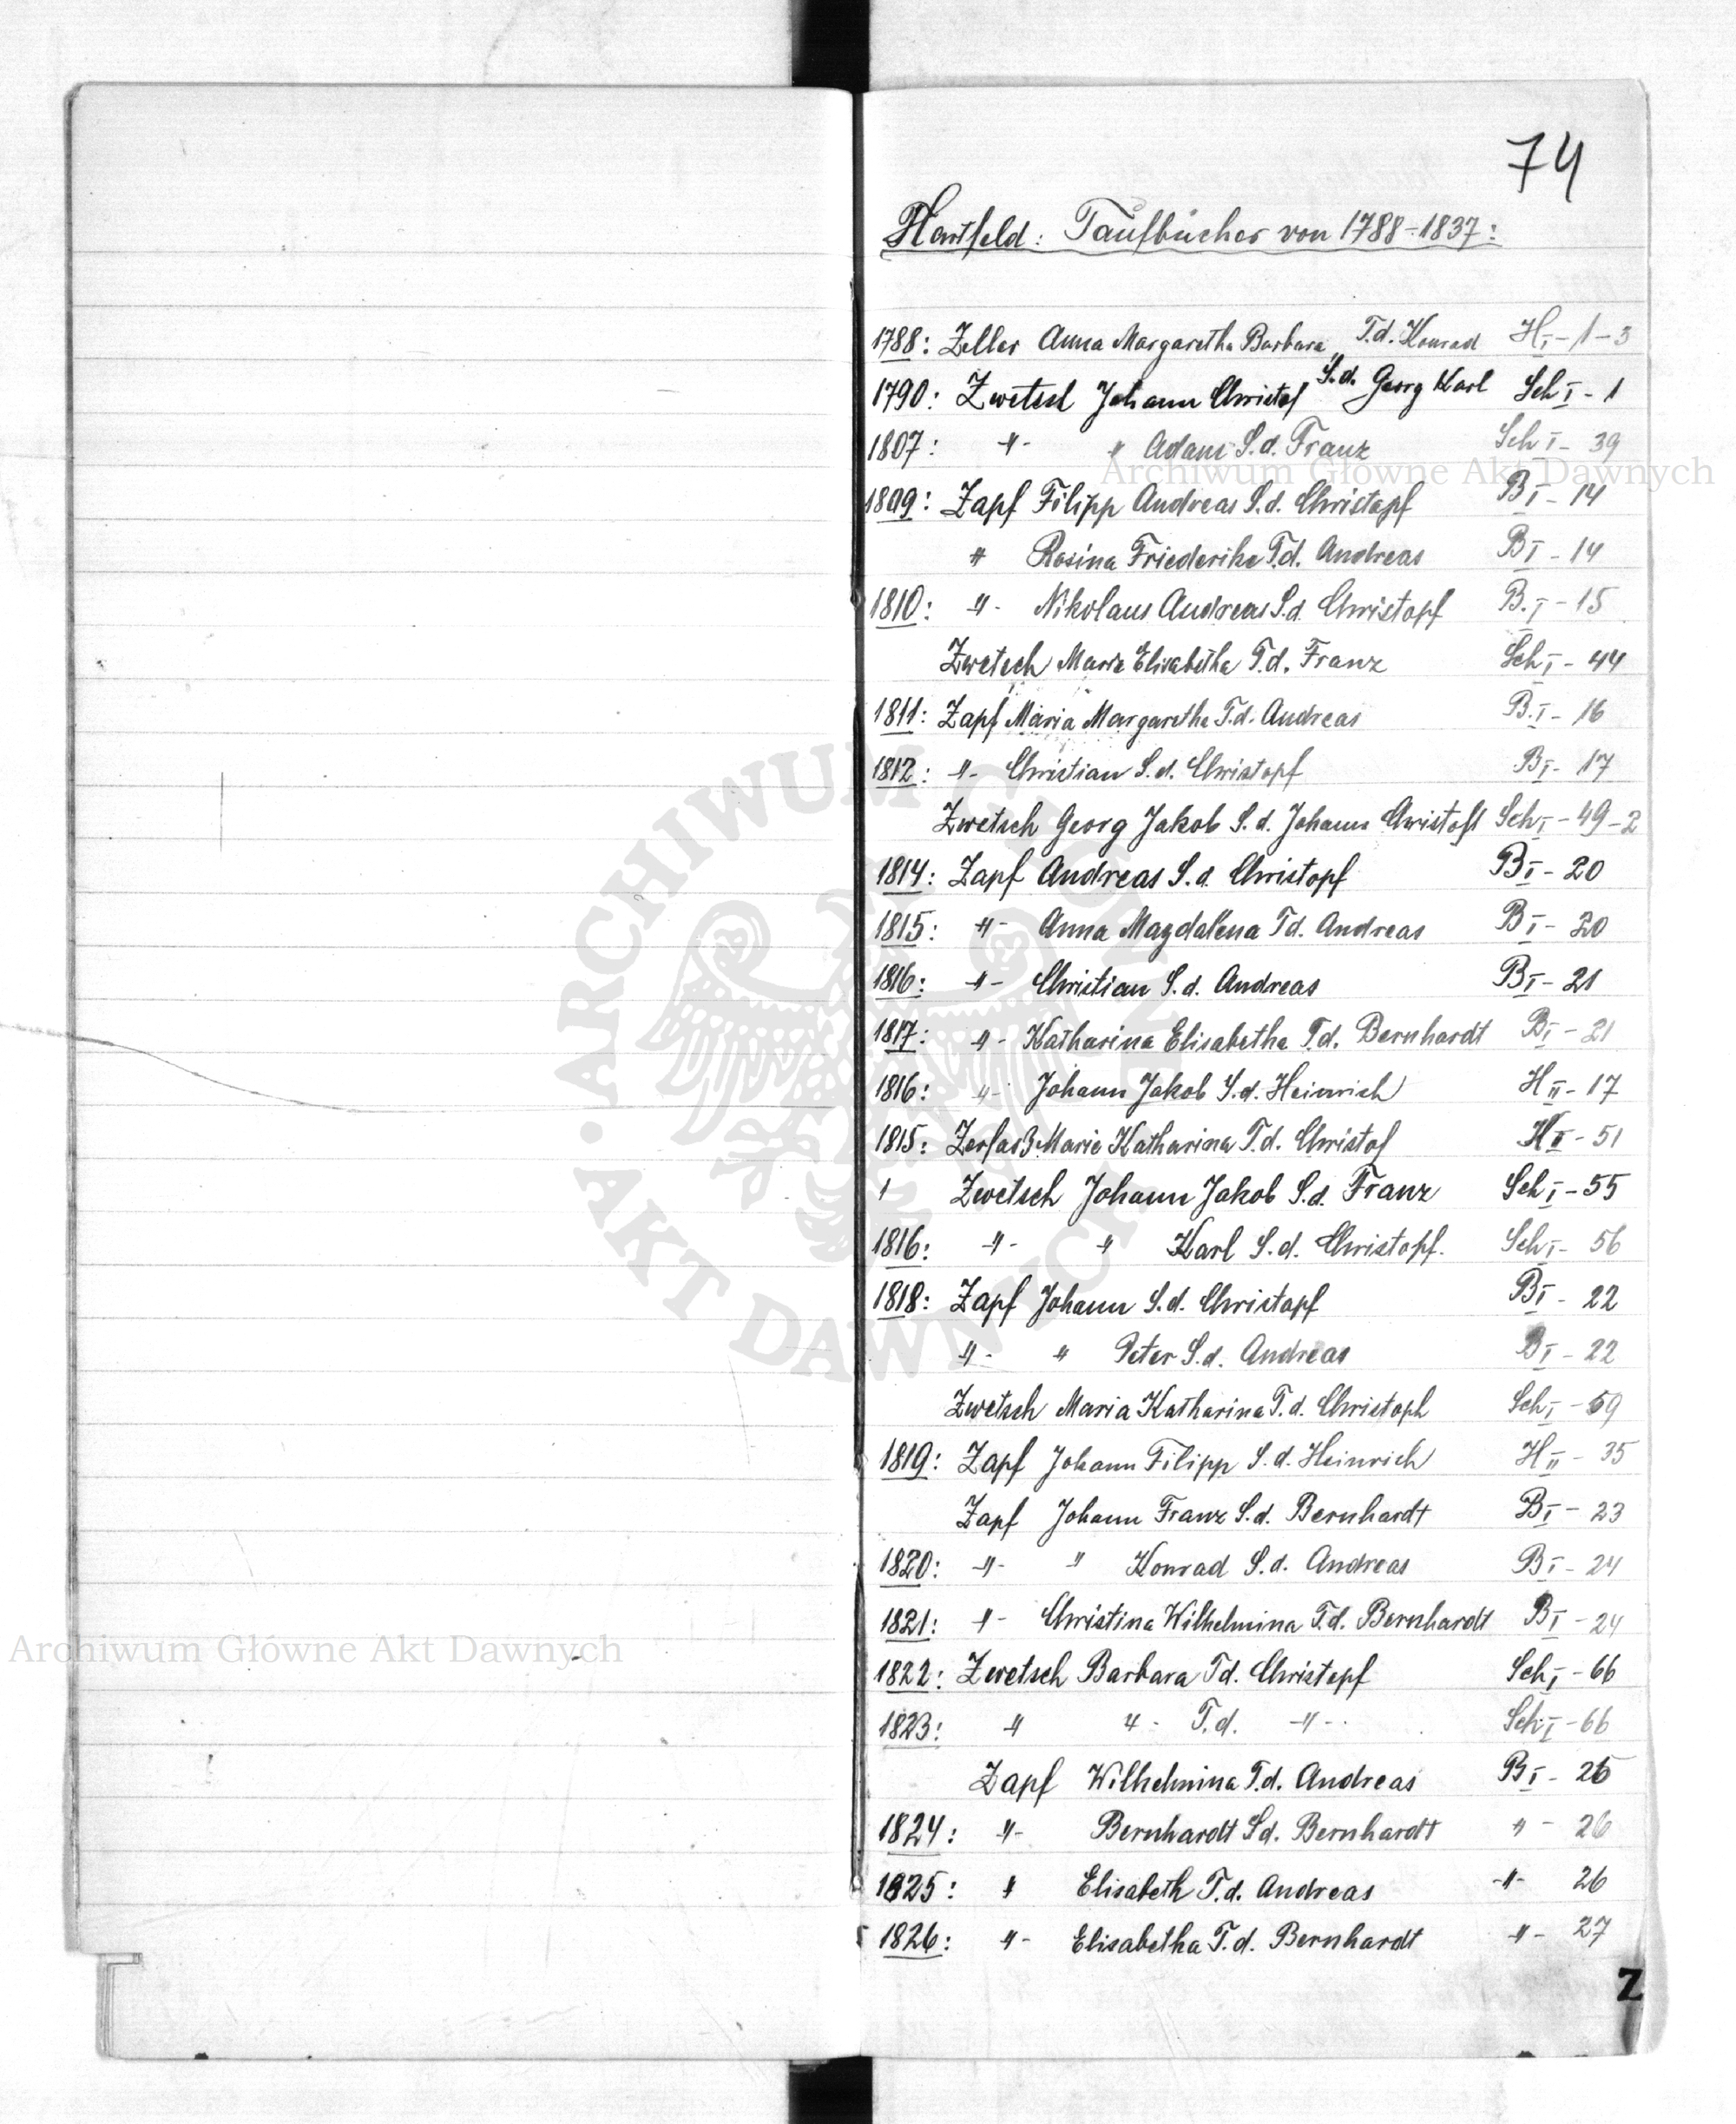 74
Hartfeld: Taufbücher von 1788-1837:
1788: Zeller Anna Margaretha Barbara T.d. Konrad H I - 1-3
1790: Zwetsch Johann Christof S.d. Georg Karl Sch I - 1
1807: -"- " Adam S.d. Franz Sch I - 39
Archiwum Główne Akt Dawnych
1809: Zapf Filipp Andreas S.d. Christopf B I - 14
" Rosina Friederike T.d. Andreas B I - 14
1810: -"- Nikolaus Andreas S.d. Christopf B. I - 15
Zwetsch Marie Elisabetha T.d. Franz Sch I - 44
1811: Zapf Maria Margaretha T.d. Andreas B. I - 16
1812: -"- Christian S.d. Christopf B I - 17
Zwetsch Georg Jakob S.d. Johann Christoff Sch I - 49-2
1814: Zapf Andreas S.d. Christopf B I - 20
1815: -"- Anna Magdalena T.d. Andreas B I - 20
1816: -"- Christian S.d. Andreas B I - 21
1817: -"- Katharina Elisabetha T.d. Bernhardt B I - 21
1816: -"- Johann Jakob S.d. Heinrich H II - 17
1815: Zerfaß Marie Katharina T.d. Christof H I - 51
1 Zwetsch Johann Jakob S.d. Franz Sch I - 55
1816: -"- " Karl S.d. Christopf. Sch I - 56
1818: Zapf Johann S.d. Christopf B I - 22
-"- " Peter S.d. Andreas B I - 22
Zwetsch Maria Katharina T.d. Christoph Sch I - 59
1819: Zapf Johann Filipp S.d. Heinrich H II - 35
Zapf Johann Franz S.d. Bernhardt B I - 23
1820: -"- " Konrad S.d. Andreas B I - 24
1821: -"- Christina Wilhelmina T.d. Bernhardt B I - 24
Archiwum Główne Akt Dawnych
1822: Zwetsch Barbara T.d. Christopf Sch I - 66
1823: " " - T.d. -"- Sch I - 66
Zapf Wilhelmina T.d. Andreas B I - 26
1824: -"- Bernhardt S.d. Bernhardt " - 26
1825: " Elisabeth T.d. Andreas -"- 26
1826: -"- Elisabetha T.d. Bernhardt " - 27
Z
ARCHIWUM GŁÓWNE AKT DAWNYCH